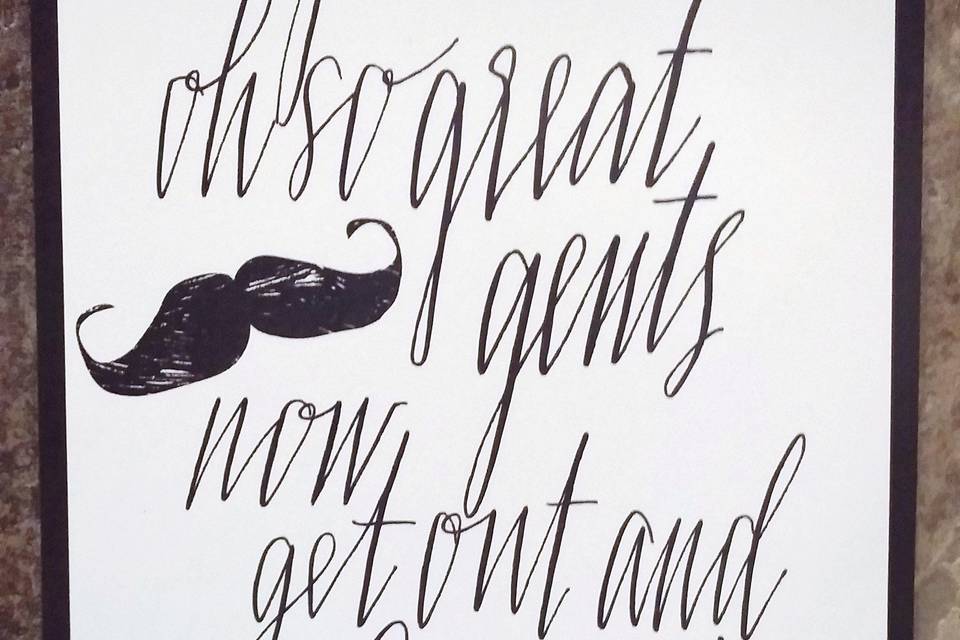 oh so great
gents
now,
get out and